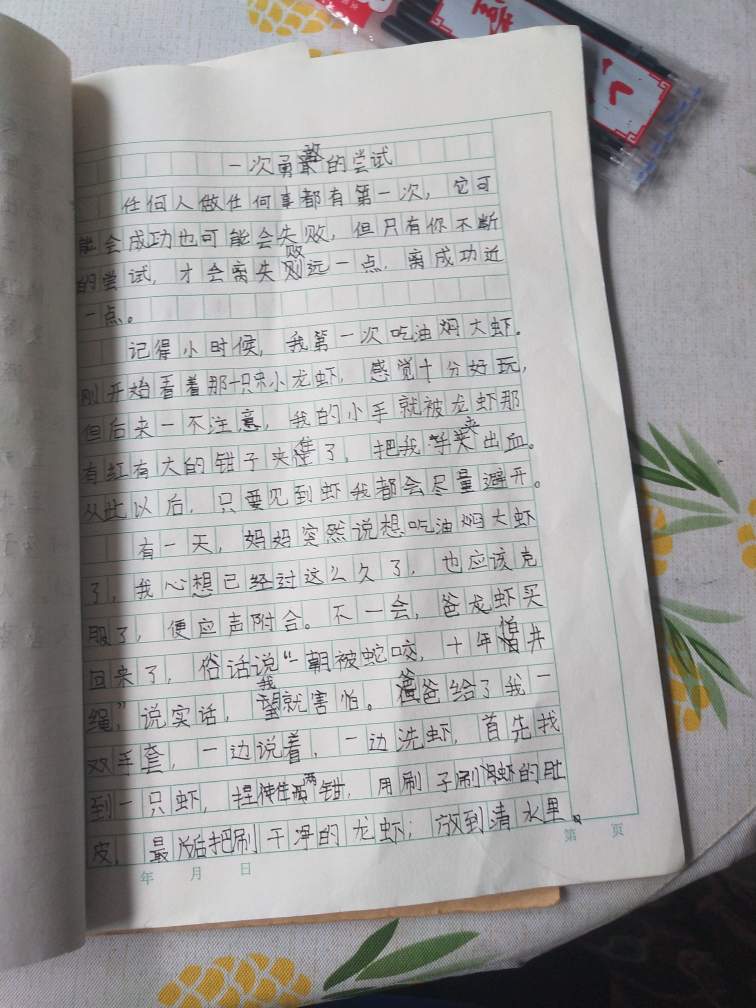 一次勇敢的尝试
任何人做任何事都有第一次，它可
能会成功也可能会失败，但只有你不断
的尝试，才会离失败远一点，离成功近
一点。
记得小时候，我第一次吃油焖大虾。
刚开始看着那一只只小龙虾，感觉十分好玩，
但后来一不注意，我的小手就被龙虾那
有红有大的钳子夹住了，把我夹出血。
从此以后，只要见到虾我都会尽量避开。
有一天，妈妈突然说想吃油焖大虾
了，我心想已经过这么久了，也应该克
服了，便应声附合。不一会，爸龙虾买
回来了，俗话说“一朝被蛇咬，十年怕井
绳”，说实话，我就害怕。爸爸给了我一
双手套，一边说着，一边洗虾，首先找
到一只虾，捏住两钳，用刷子刷虾的肚
皮，最后把刷干净的龙虾；放到清水里。
第 页
年 月 日